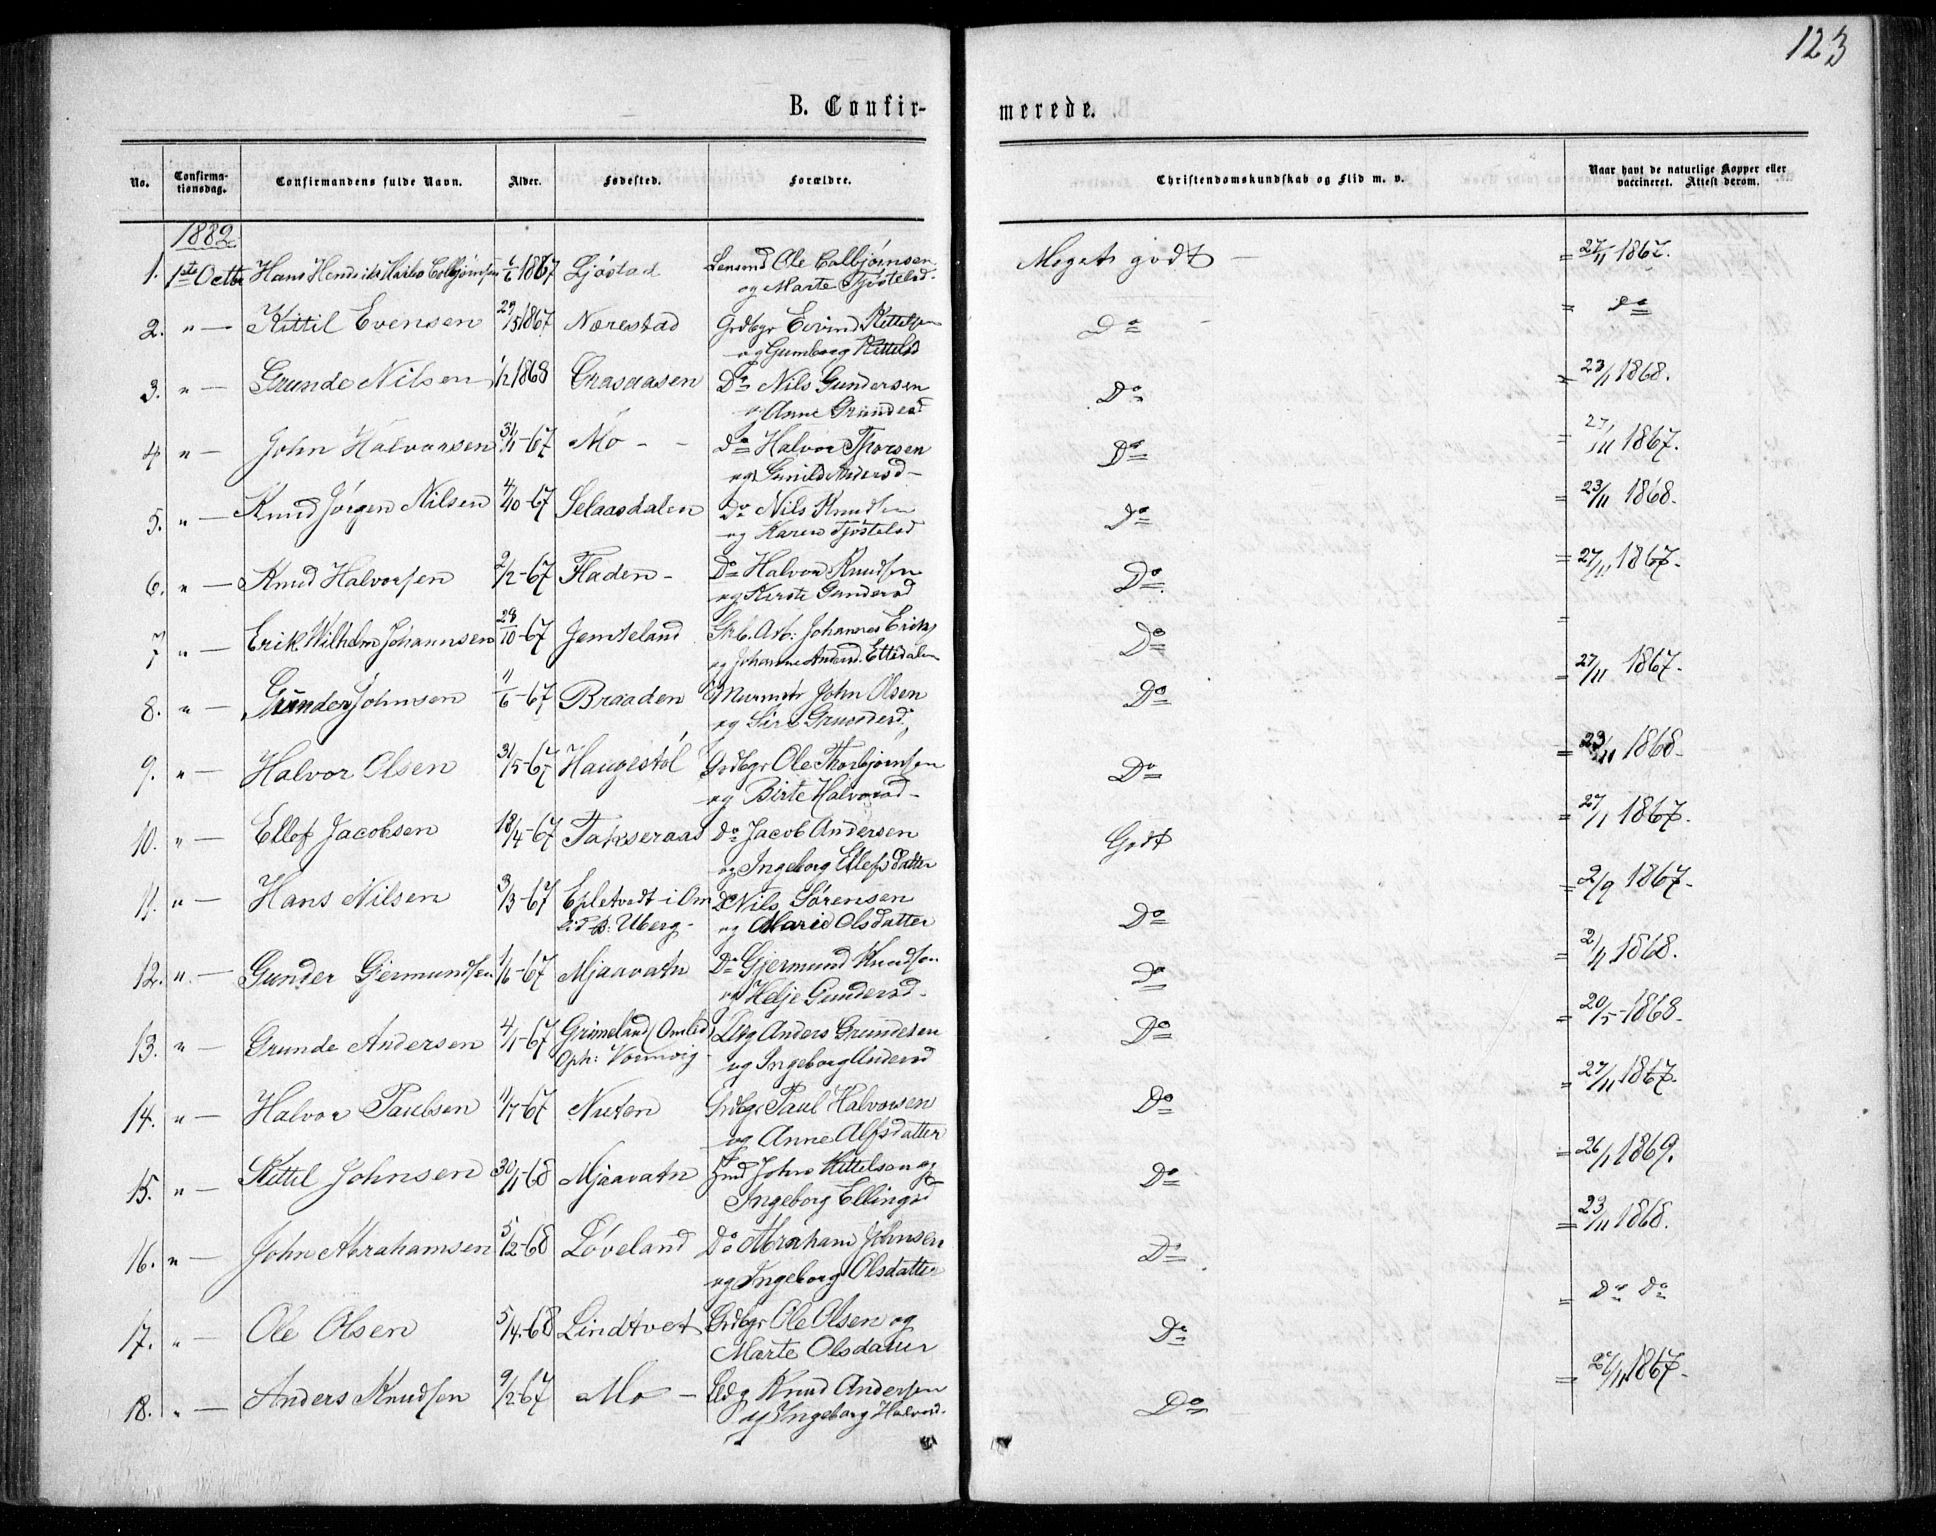 123
B. Confir- merede.
No. Confirma- tionsdag. Confirmandens fulde Navn. Alder. Fødested. Forældre. Christendomskundskab og Flid m. v. Naar havt de naturlige Kopper eller vaccineret. Attest derom.
1882
1. 1ste Octbr Hans Hendrik 1867 Ljøstad Ole Colbjørnsen Meget godt — = 27/11 1867.
og Marte Tjøstelsd.
2. " — Kittil Evensen 29/5 1867 Nærestad Grdbgr Eivind Kittelsen Do = do
og Gumborg Kittelsd
3. " — Grunde Nilsen 1/2 1868 Aasaasen Do Nils Gundersen Do = 23/11 1868.
og Anne Grundesd
4 " — John Halvorsen 31/11-67 Mo - - do Halvor Thorsen Do = 27/11 1867.
og Gunild Andersd —
5. " — Knud Jørgen Nilsen 4/10-67 Selaasdalen do Nils Knudsen Do = 23/11 1868.
og Karen Tjøstelsd
6. " — Knud Halvorsen 2/2-67 Fladen - Do Halvor Knudsen Do = 27/11 1867.
og Kirsti Gundersd
7 " — Erik Wilhelm Johannsen 28/10-67 Jemteland Arb: Johannes Eriks Do =
og Johanne Andersd. Ettedalen
8. " — Gunder Johnsen 11/6-67 Braaden Murmstr John Olsen Do = 27/11 1867.
og Siri Grundesd.
9. " — Halvor Olsen 31/5-67 Haugestøl Grdbgr Ole Thorbjørnsen Do = 23/11 1868-
og Birte Halvorsd —
10. " — Ellef Jacobsen 18/4-67 Takseraas Do Jacob Andersen Godt = 27/11 1867.
og Ingeborg Ellefsdatter
11. " — Hans Nilsen 3/3-67 Epletvedt i Om Do Nils Sørensen Do = 2/9 1867-
lid Uberg - og Marie Olsdatter
12. " - Gunder Gjermundsen 1/6-67 Mjaavatn Do Gjermund Knudsen Do = 2/11 1868.
og Helje Gundersd -
13. " — Grunde Andersen 4/1-67 Grimeland (Omlid) Anders Grundesen Do = 20/5-1868-
Oph: og Ingeborg Andersd
14. " — Halvor Paulsen 11/7-67 Nuten Grdbgr Paul Halvorsen Do = 27/11 1867.
og Anne Alfsdatter
15. " — Kittil Johnsen 30/1-68 Mjaavatn John Kittelsen og Do = 26/1 1869.
Ingeborg Ellingsd
16. " — John Abrahamsen 5/12-68 Løveland Do Abraham Johnsen Do = 23/11 1868.
og Ingeborg Olsdatter
17. " — Ole Olsen 5/4-68 Lindtvet Grdbgr Ole Olsen og Do = Do Do
Marte Olsdatter
18. " — Anders Knudsen 9/12-67 Mo — Knud Andersen Do = 27/11 1867-
og Ingeborg Halvorsd.